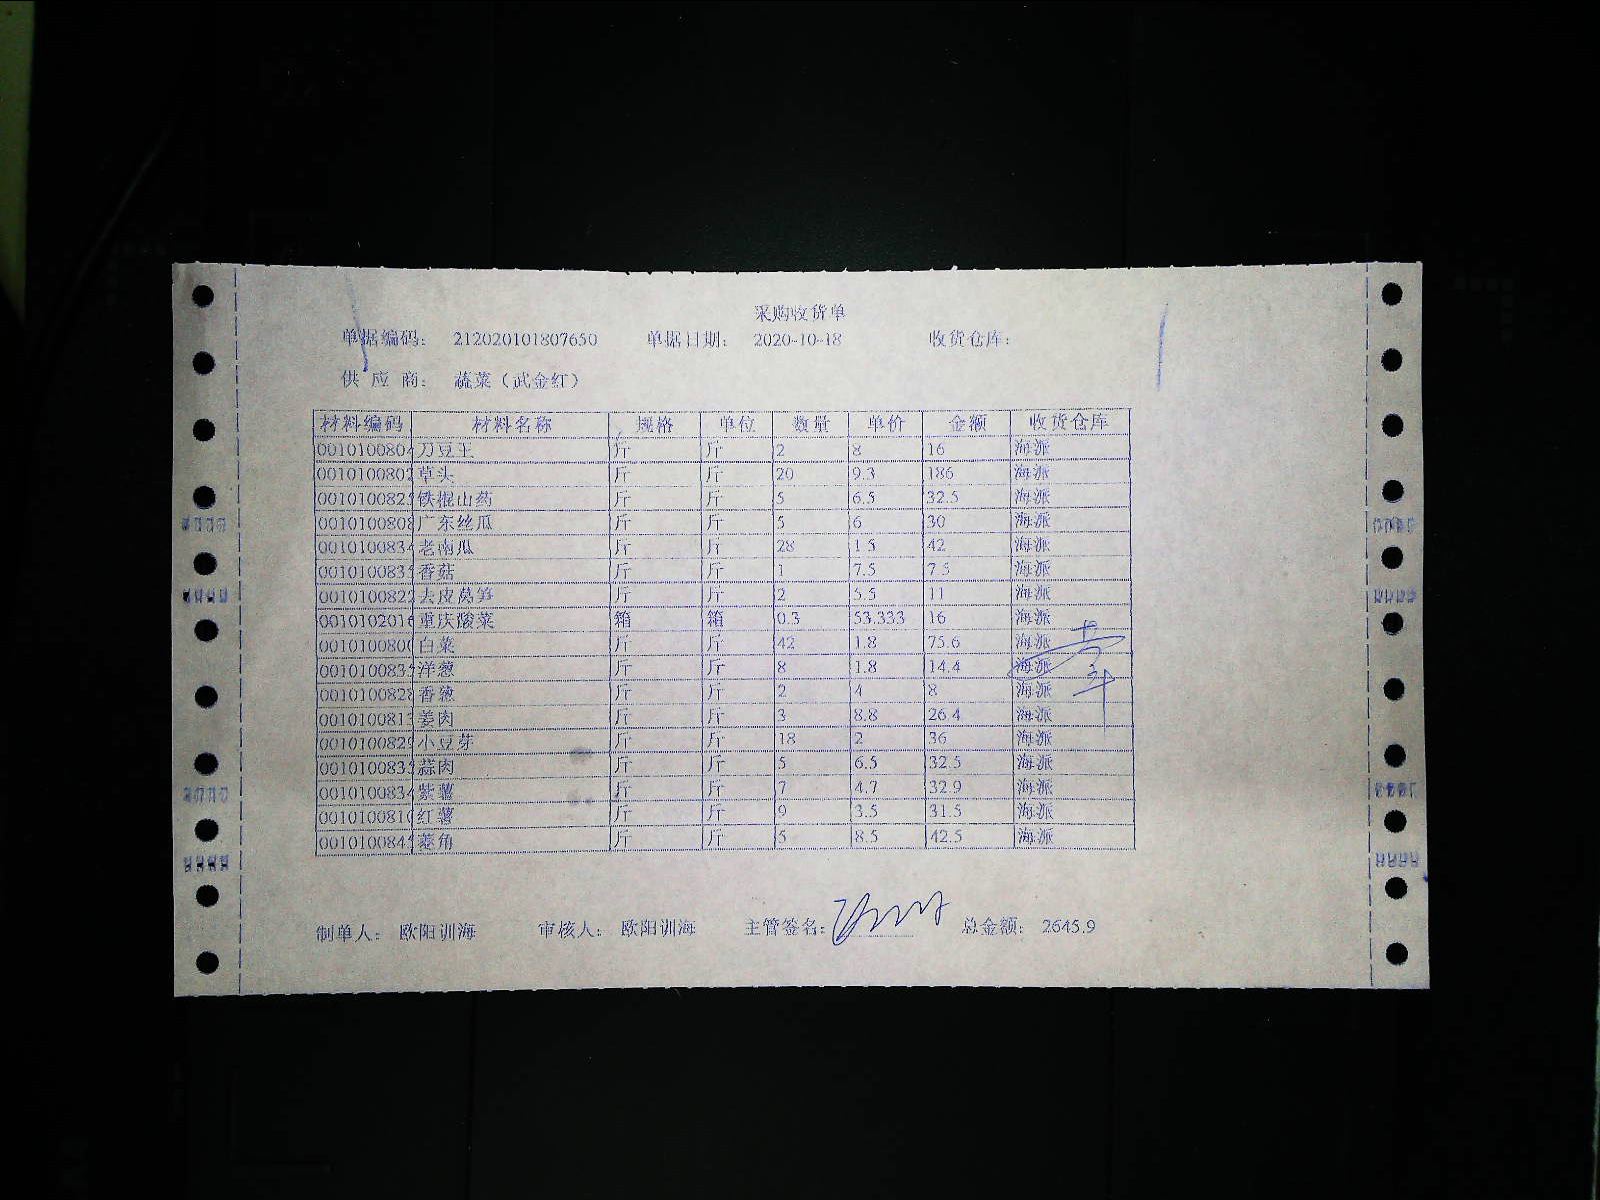 采购收货单
单据编码： 212020101807650 单据日期： 2020-10-18 收货仓库：
供 应 商： 蔬菜（武金红）
材料编码 材料名称 规格 单位 数量 单价 金额 收货仓库
0010100804 刀豆王 斤 斤 2 8 16 海派
0010100802 草头 斤 斤 20 9.3 186 海派
0010100825 铁棍山药 斤 斤 5 6.5 32.5 海派
0010100808 广东丝瓜 斤 斤 5 6 30 海派
0010100834 老南瓜 斤 斤 28 1.5 42 海派
0010100835 香菇 斤 斤 1 7.5 7.5 海派
0010100822 去皮莴笋 斤 斤 2 5.5 11 海派
0010102016 重庆酸菜 箱 箱 0.3 53.333 16 海派
0010100800 白菜 斤 斤 42 1.8 75.6 海派
0010100835 洋葱 斤 斤 8 1.8 14.4 海派
0010100828 香葱 斤 斤 2 4 8 海派
0010100813 姜肉 斤 斤 3 8.8 26.4 海派
0010100829 小豆芽 斤 斤 18 2 36 海派
0010100833 蒜肉 斤 斤 5 6.5 32.5 海派
0010100834 紫薯 斤 斤 7 4.7 32.9 海派
0010100810 红薯 斤 斤 9 3.5 31.5 海派
0010100845 菱角 斤 斤 5 8.5 42.5 海派
制单人： 欧阳训海 审核人： 欧阳训海 主管签名： 总金额： 2645.9